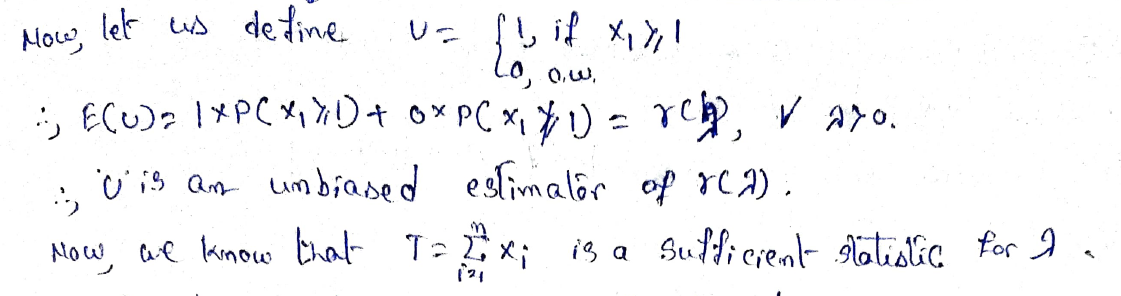 Now, let us define U = { 1, if x₁ ≥ 1
0, o.w.
∴, E(U) = 1×P(x₁ ≥ 1) + 0×P(x₁ ≱ 1) = γ(λ), ∀ λ>0.
∴, 'U' is an unbiased estimator of γ(λ).
Now, we know that T = Σⁿᵢ₌₁ xᵢ is a sufficient statistic for λ.